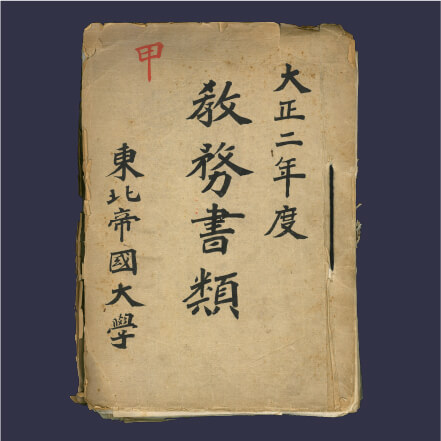 大正二年度
教務書類
東北帝國大學
甲